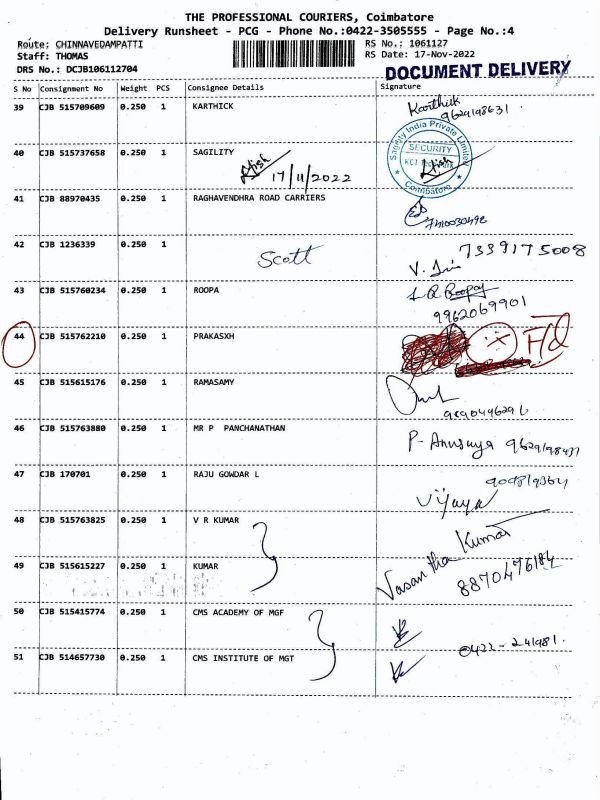 THE PROFESSIONAL COURIERS, Coimbatore
Delivery Runsheet - PCG - Phone No.:0422-3505555 - Page No.:4
Route: CHINNAVEDAMPATTI RS No.: 1061127
Staff: THOMAS RS Date: 17-Nov-2022
DRS No.: DCJB106112704 DOCUMENT DELIVERY
S No Consignment No Weight PCS Consignee Details Signature
39 CJB 515709609 0.250 1 KARTHICK Karthick
9629198631
Sagility India Private Limited
SECURITY
Coimbatore
40 CJB 515737658 0.250 1 SAGILITY
17/11/2022
41 CJB 88970435 0.250 1 RAGHAVENDHRA ROAD CARRIERS
7410030492
42 CJB 1236339 0.250 1 Scott 7339175008
43 CJB 515760234 0.250 1 ROOPA Roopa
9962069901
44 CJB 515762210 0.250 1 PRAKASXH F/d
45 CJB 515615176 0.250 1 RAMASAMY
46 CJB 515763880 0.250 1 MR P PANCHANATHAN P. Anusuya 9629198437
47 CJB 170701 0.250 1 RAJU GOWDAR L
Vijaya
48 CJB 515763825 0.250 1 V R KUMAR
49 CJB 515615227 0.250 1 KUMAR Vasantha Kumar
8870476184
50 CJB 515415774 0.250 1 CMS ACADEMY OF MGF
0422-241981.
51 CJB 514657730 0.250 1 CMS INSTITUTE OF MGT